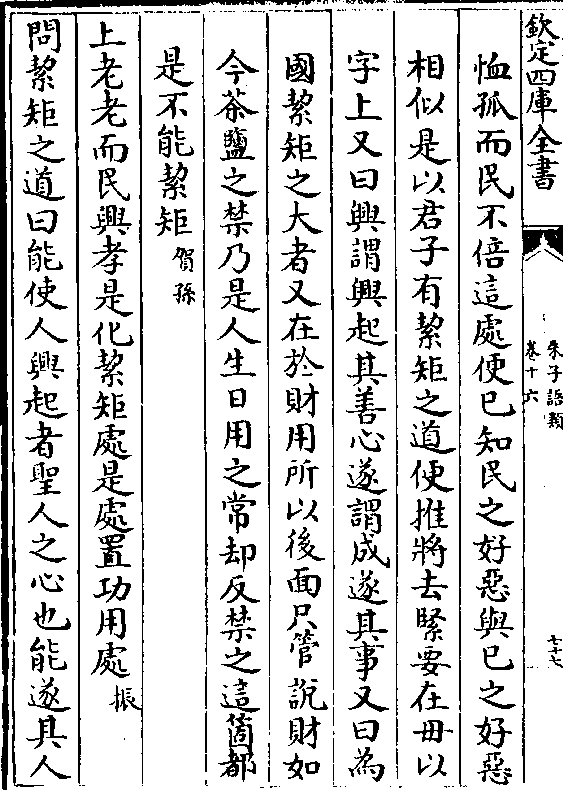 欽定四庫全書
朱子語類
卷十六
七十七
恤孤而民不倍這處便已知民之好惡與已之好惡
相似是以君子有絜矩之道便推將去緊要在毋以
字上又曰興謂興起其善心遂謂成遂其事又曰為
國絜矩之大者又在於財用所以後面只管說財如
今茶鹽之禁乃是人生日用之常却反禁之這箇都
是不能絜矩賀孫
上老老而民興孝是化絜矩處是處置功用處振
問絜矩之道曰能使人興起者聖人之心也能遂其人